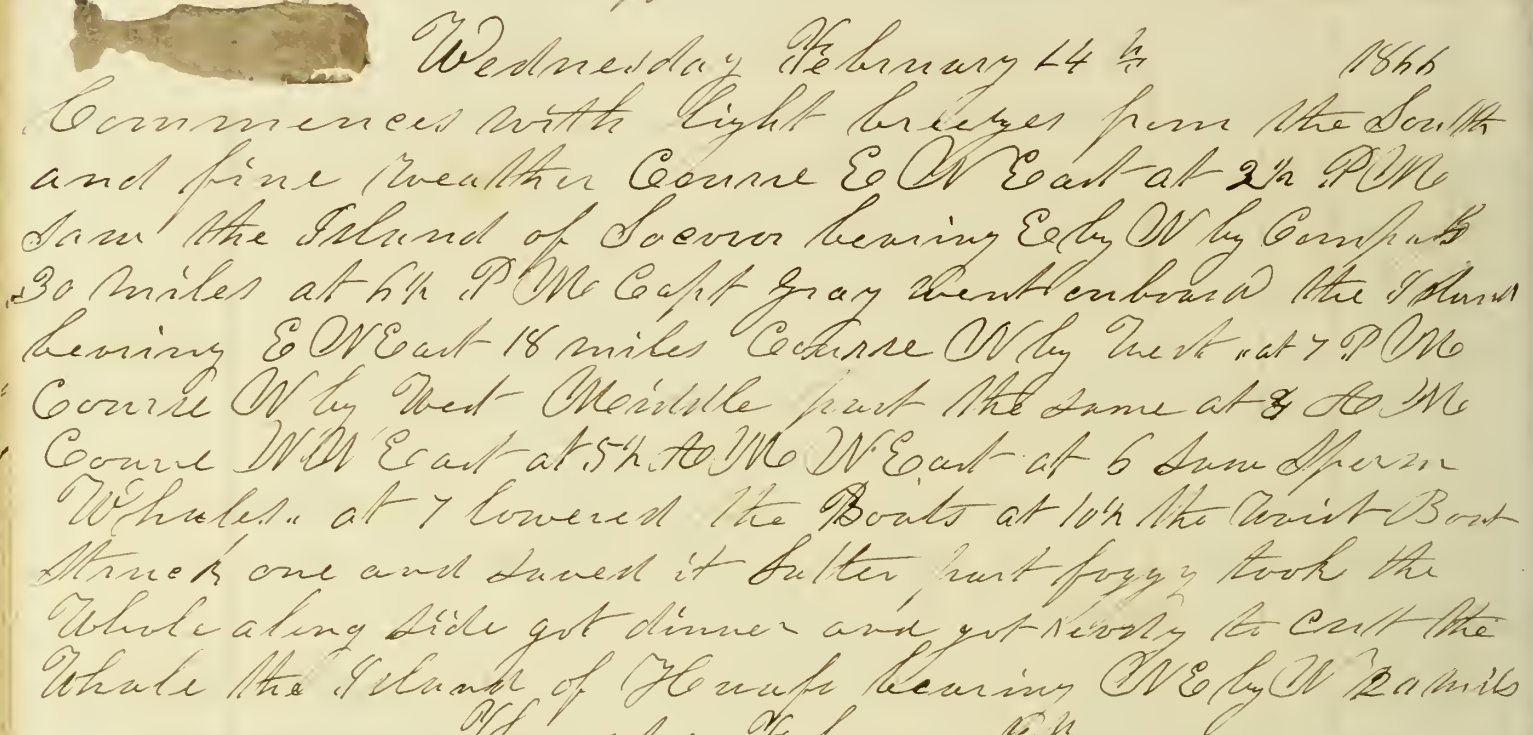 Wednesday February 14th 1866
Commences with light breezes from the South
and fine weather Course E N East at 2½ P M
saw the Island of bearing E by N by Compass
30 miles at 6½ P M Capt Gray went onboard the Island
bearing E N East 18 miles Course N by West " at 7 P M
Course N by West Middle part the same at A M
Course N N East at 5½ A M N East at 6 saw Sperm
Whales " at 7 lowered the Boats at 10½ the Waist Boat
struck one and saved it latter part foggy took the
Whale along side got dinner and got ready to cutt the
Whale the Island of bearing N E by N miles